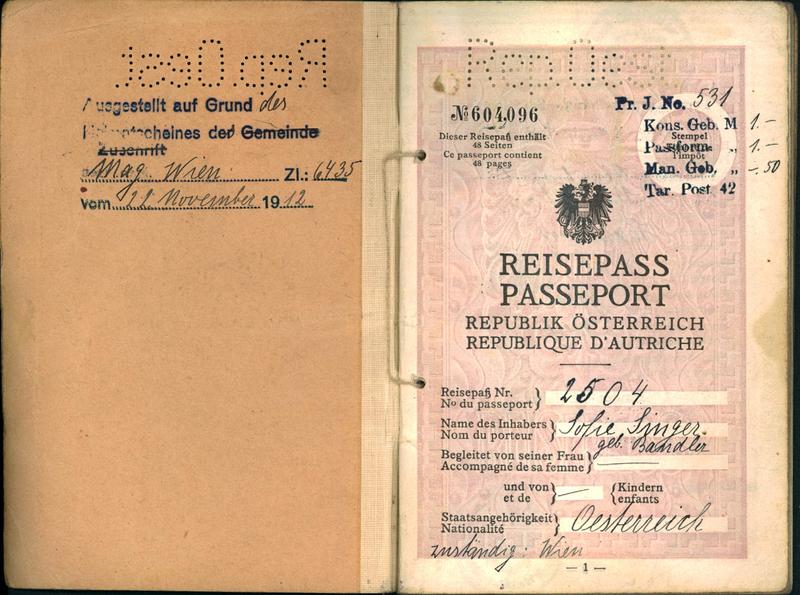 Rep.Oest.
Ausgestellt auf Grund des
Heimatscheines der Gemeinde
Zuschrift
Mag. Wien Zl.: 6435
vom 21. November 1912
Rep.Oest.
№ 604,096
Dieser Reisepaß enthält
48 Seiten
Ce passeport contient
48 pages
Pr. J. No. 531
Kons. Geb. M 1.-
Stempel
Passform. „ 1.-
Timpôt
Man. Geb. „ -.50
Tar. Post. 42
REISEPASS
PASSEPORT
REPUBLIK ÖSTERREICH
REPUBLIQUE D'AUTRICHE
Reisepaß Nr.
No du passeport
2504
Name des Inhabers
Nom du porteur
Sofie Singer
geb. Bandler
Begleitet von seiner Frau
Accompagné de sa femme
und von
et de
Kindern
enfants
Staatsangehörigkeit
Nationalité
Oesterreich
zuständig: Wien
— 1 —